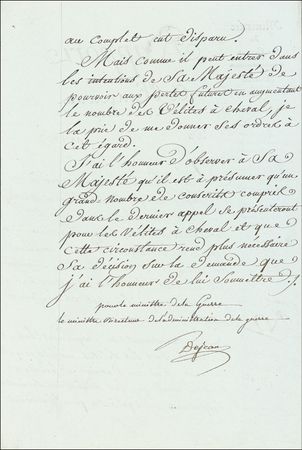 au complet eut disparu.
Mais comme il peut entrer dans
les intentions de Sa Majesté de
pourvoir aux pertes futures en augmentant
le nombre des Vélites à cheval, je
la prie de me donner ses ordres à
cet égard.
J'ai l'honneur d'observer à Sa
Majesté qu'il est à présumer qu'un
grand nombre de conscrits compris
dans le dernier appel se présenteront
pour les Vélites à cheval et que
cette circonstance rend plus nécessaire
Sa décision sur la demande que
j'ai l'honneur de lui soumettre ./.
pour le ministre de la Guerre
le ministre Directeur de l'administration de la guerre
Dejean